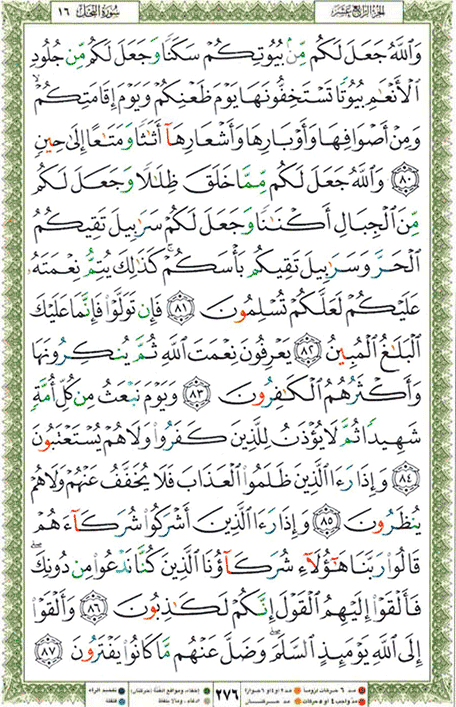 الجزء الرابع عشر
سورة النحل ١٦
وَٱللَّهُ جَعَلَ لَكُم مِّنۢ بُيُوتِكُمْ سَكَنًا وَجَعَلَ لَكُم مِّن جُلُودِ
ٱلْأَنْعَٰمِ بُيُوتًا تَسْتَخِفُّونَهَا يَوْمَ ظَعْنِكُمْ وَيَوْمَ إِقَامَتِكُمْ ۙ
وَمِنْ أَصْوَافِهَا وَأَوْبَارِهَا وَأَشْعَارِهَآ أَثَٰثًا وَمَتَٰعًا إِلَىٰ حِينٍ
﴿٨٠﴾ وَٱللَّهُ جَعَلَ لَكُم مِّمَّا خَلَقَ ظِلَٰلًا وَجَعَلَ لَكُم
مِّنَ ٱلْجِبَالِ أَكْنَٰنًا وَجَعَلَ لَكُمْ سَرَٰبِيلَ تَقِيكُمُ
ٱلْحَرَّ وَسَرَٰبِيلَ تَقِيكُم بَأْسَكُمْ ۚ كَذَٰلِكَ يُتِمُّ نِعْمَتَهُۥ
عَلَيْكُمْ لَعَلَّكُمْ تُسْلِمُونَ ﴿٨١﴾ فَإِن تَوَلَّوْا۟ فَإِنَّمَا عَلَيْكَ
ٱلْبَلَٰغُ ٱلْمُبِينُ ﴿٨٢﴾ يَعْرِفُونَ نِعْمَتَ ٱللَّهِ ثُمَّ يُنكِرُونَهَا
وَأَكْثَرُهُمُ ٱلْكَٰفِرُونَ ﴿٨٣﴾ وَيَوْمَ نَبْعَثُ مِن كُلِّ أُمَّةٍ
شَهِيدًا ثُمَّ لَا يُؤْذَنُ لِلَّذِينَ كَفَرُوا۟ وَلَا هُمْ يُسْتَعْتَبُونَ
﴿٨٤﴾ وَإِذَا رَءَا ٱلَّذِينَ ظَلَمُوا۟ ٱلْعَذَابَ فَلَا يُخَفَّفُ عَنْهُمْ وَلَا هُمْ
يُنظَرُونَ ﴿٨٥﴾ وَإِذَا رَءَا ٱلَّذِينَ أَشْرَكُوا۟ شُرَكَآءَهُمْ
قَالُوا۟ رَبَّنَا هَٰٓؤُلَآءِ شُرَكَآؤُنَا ٱلَّذِينَ كُنَّا نَدْعُوا۟ مِن دُونِكَ ۖ
فَأَلْقَوْا۟ إِلَيْهِمُ ٱلْقَوْلَ إِنَّكُمْ لَكَٰذِبُونَ ﴿٨٦﴾ وَأَلْقَوْا۟
إِلَى ٱللَّهِ يَوْمَئِذٍ ٱلسَّلَمَ ۖ وَضَلَّ عَنْهُم مَّا كَانُوا۟ يَفْتَرُونَ ﴿٨٧﴾
٢٧٦